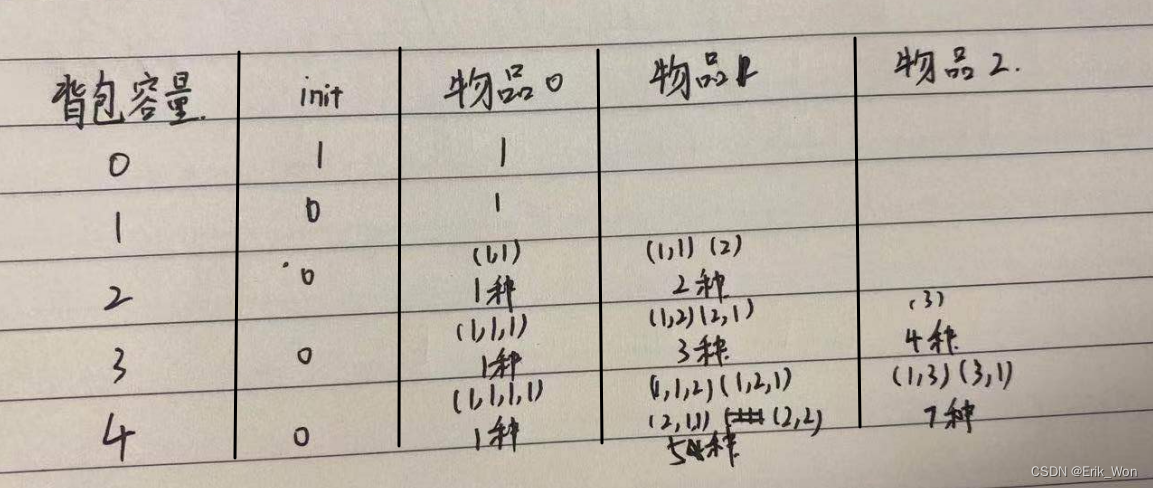 背包容量. init 物品0 物品1 物品2.
0 1 1
1 0 1
(1,1) (1,1) (2)
2 0 1种 2种
(1,1,1) (1,2) (2,1) (3)
3 0 1种 3种. 4种.
(1,1,1,1) (1,1,2) (1,2,1) (1,3) (3,1)
(2,1,1) (2,2)
4 0 1种 5种 7种
CSDN @Erik_Won